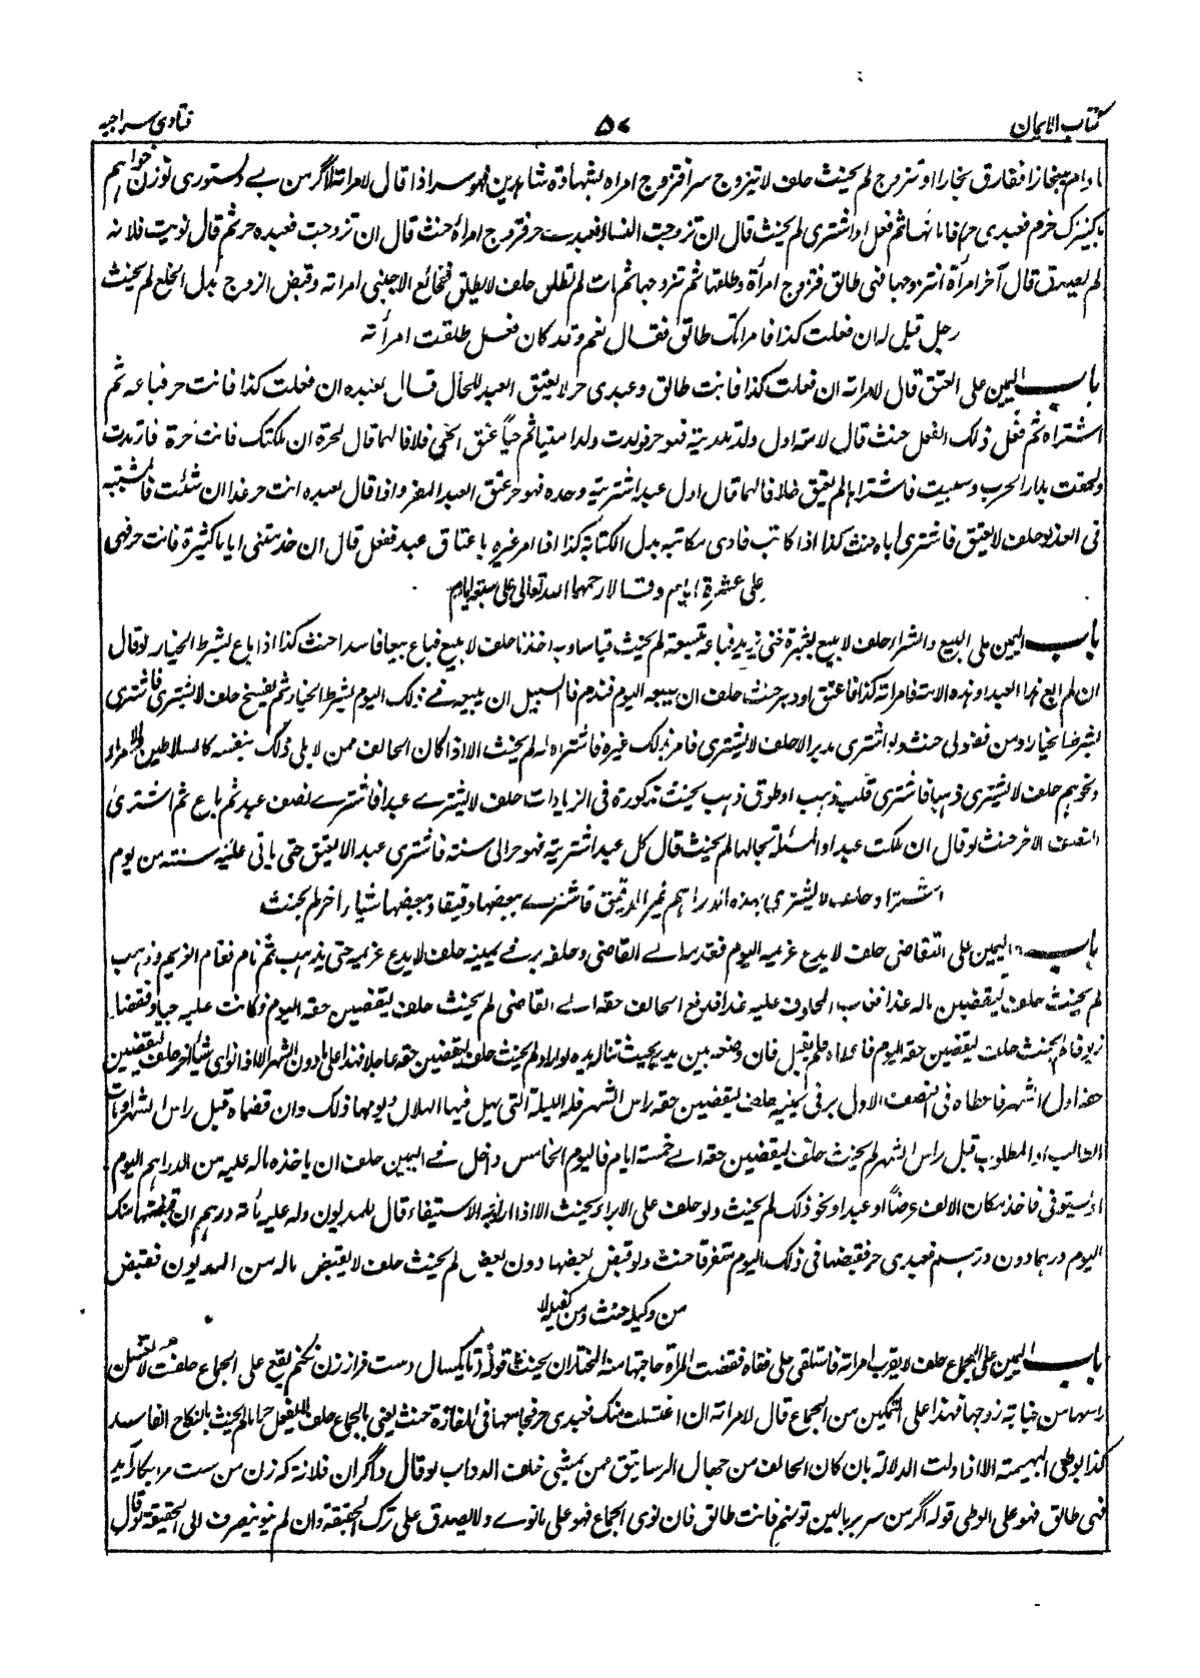 كتاب الايمان ٥٧ فتاوى سراجيه
مادام ببخارا ففارق بخارا وتزوج لم يحنث حلف لا يتزوج سرا فتزوج امراه بشهادة شاهدين فهو سر اذا قال لامراته اگر من بے دستورى تو زن خواهم
يا كنيزك خرم فعبدى حر فابانها ثم فعل او اشترى لم يحنث قال ان تزوجت النساء فعبدى حر فتزوج امرأة حنث قال ان تزوجت فعبده حر ثم قال نويت فلانة
لم يصدق قال آخر امرأة اتزوجها فهى طالق فتزوج امرأة وطلقها ثم تزوجها ثم مات لم تطلق حلف لا يطلق فخالع الاجنبى امراته وقبض الزوج بدل الخلع لم يحنث
رجل قيل له ان فعلت كذا فامراتك طالق فقال نعم وقد كان فعل طلقت امرأته
باب اليمين على العتق قال لامراته ان فعلت كذا فانت طالق وعبدى حر لا يعتق العبد للحال قال لعبده ان فعلت كذا فانت حر فباعه ثم
اشتراه ثم فعل ذلك الفعل حنث قال لامته اول ولد تلدينه فهو حر فولدت ولدا ميتا ثم حيا عتق الحى خلافا لهما قال لحرة ان ملكتك فانت حرة فارتدت
ولحقت بدار الحرب وسبيت فاشتراها لم يعتق خلافا لهما قال اول عبد اشتريته وحده فهو حر عتق العبد المفرد اذا قال لعبده انت حر غدا ان شئت فالمشية
فى الغد لو حلف لا يعتق فاشترى اباه حنث كذا اذا كاتب فادى مكاتبه بدل الكتابة كذا اذا امر غيره باعتاق عبد ففعل قال ان خدمتنى اياما كثيرة فانت حر فهى
على عشرة ايام وقالا رحمهما الله تعالى على سبعة ايام
باب اليمين على البيع والشراء حلف لا يبيع بعشرة حتى يزيد فباعه بتسعة لم يحنث قياسا وبه اخذنا حلف لا يبيع فباع بيعا فاسدا حنث كذا اذا باع بشرط الخيار لو قال
ان لم ابع هذا العبد او هذه الامة فامراته كذا فاعتق او دبر حنث حلف ان يبيعه اليوم فندم فالسبيل ان يبيعه فے ذلك اليوم بشرط الخيار ثم يفسخ حلف لا يشترى فاشترى
بشرط الخيار او من فضولى حنث ولو اشترى مدبرا لا حلف لا يشترى فامر بذلك غيره فاشتراه له لم يحنث الا اذا كان الحالف ممن لا يلى ذلك بنفسه كالسلاطين والامراء
ونحوهم حلف لا يشترى ذهبا فاشترى قلب ذهب او طوق ذهب يحنث مذكورة فى الزيادات حلف لا يشترے عبدا فاشترے نصف عبد ثم باع ثم اشترى
النصف الآخر حنث لو قال ان ملكت عبدا والمسئلة بحالها لم يحنث قال كل عبد اشتريته فهو حر الى سنة فاشترى عبدا لا يعتق حتى ياتى عليه سنة من يوم
اشتراه وحلف لا يشترى بهذه الدراهم غير الدقيق فاشترے ببعضها دقيقا وببعضها شيئا اخر لم يحنث
باب اليمين على التقاضى حلف لا يدع غريمه اليوم فقدمه الے القاضى وحلفه بر فے يمينه حلف لا يدع غريمه حتى يذهب ثم نام فقام الغريم وذهب
لم يحنث حلف ليقضين ماله غدا فغاب المحلوف عليه غدا فدفع الحالف حقه الے القاضى لم يحنث حلف ليقضين حقه اليوم وكانت عليه جياد فقضا
زيوفا لم يحنث حلف ليقضين حقه اليوم فاعطاه فلم يقبل فان وضعه بين يديه بحيث تناله يده لو اراد لم يحنث حلف ليقضين حقه عاجلا فهذا على ما دون الشهر الا اذا نوى شيئا آخر حلف ليقضين
حقه اول الشهر فاعطاه فى النصف الاول بر فى يمينه حلف ليقضين حقه راس الشهر فله الليلة التى يهل فيها الهلال ويومها ذلك وان قضاه قبل راس الشهر او مات
الطالب او المطلوب قبل راس الشهر لم يحنث حلف ليقضين حقه الے خمسة ايام فاليوم الخامس داخل فے اليمين حلف ان ياخذ ماله عليه من الدراهم اليوم
او يستوفى فاخذ مكان الالف عرضا او عبدا ونحو ذلك لم يحنث ولو حلف على الابراء يحنث الا اذا اراد به الاستيفاء قال لمديون وله عليه مائة درهم ان قبضتها منك
اليوم درهما دون درهم فعبدى حر فقبضها فى ذلك اليوم متفرقا حنث ولو قبض بعضها دون بعض لم يحنث حلف لا يقبض ماله من المديون فقبض
من وكيله حنث ومن كفيله لا
باب اليمين على الجماع حلف لا يقرب امراته فاستلقى على قفاه فقضت المرأة حاجتها منه المختار ان يحنث قوله تا يكسال دست فراز زن نكنم يقع على الجماع حلفت لا تغسلن
راسها من جنابة زوجها فهذا على التمكين من الجماع قال لامراته ان اغتسلت منك فعبدى حر فجامعها فى المفازة حنث يعنى بالجماع حلف لا يفعل حراما لم يحنث بالنكاح الفاسد
كذا بوطى البهيمة الا اذا دلت الدلالة بان كان الحالف من جهال الرساتيق ممن يمشى خلف الدواب لو قال واگر ان فلانه كه زن من ست مرا بكار آيد
فهى طالق فهو على الوطى قوله اگر من سر بر بالين تو نهم فانت طالق فان نوى الجماع فهو على ما نوے ولا يصدق على ترك الحقيقة وان لم ينو ينصرف الى الحقيقة قال